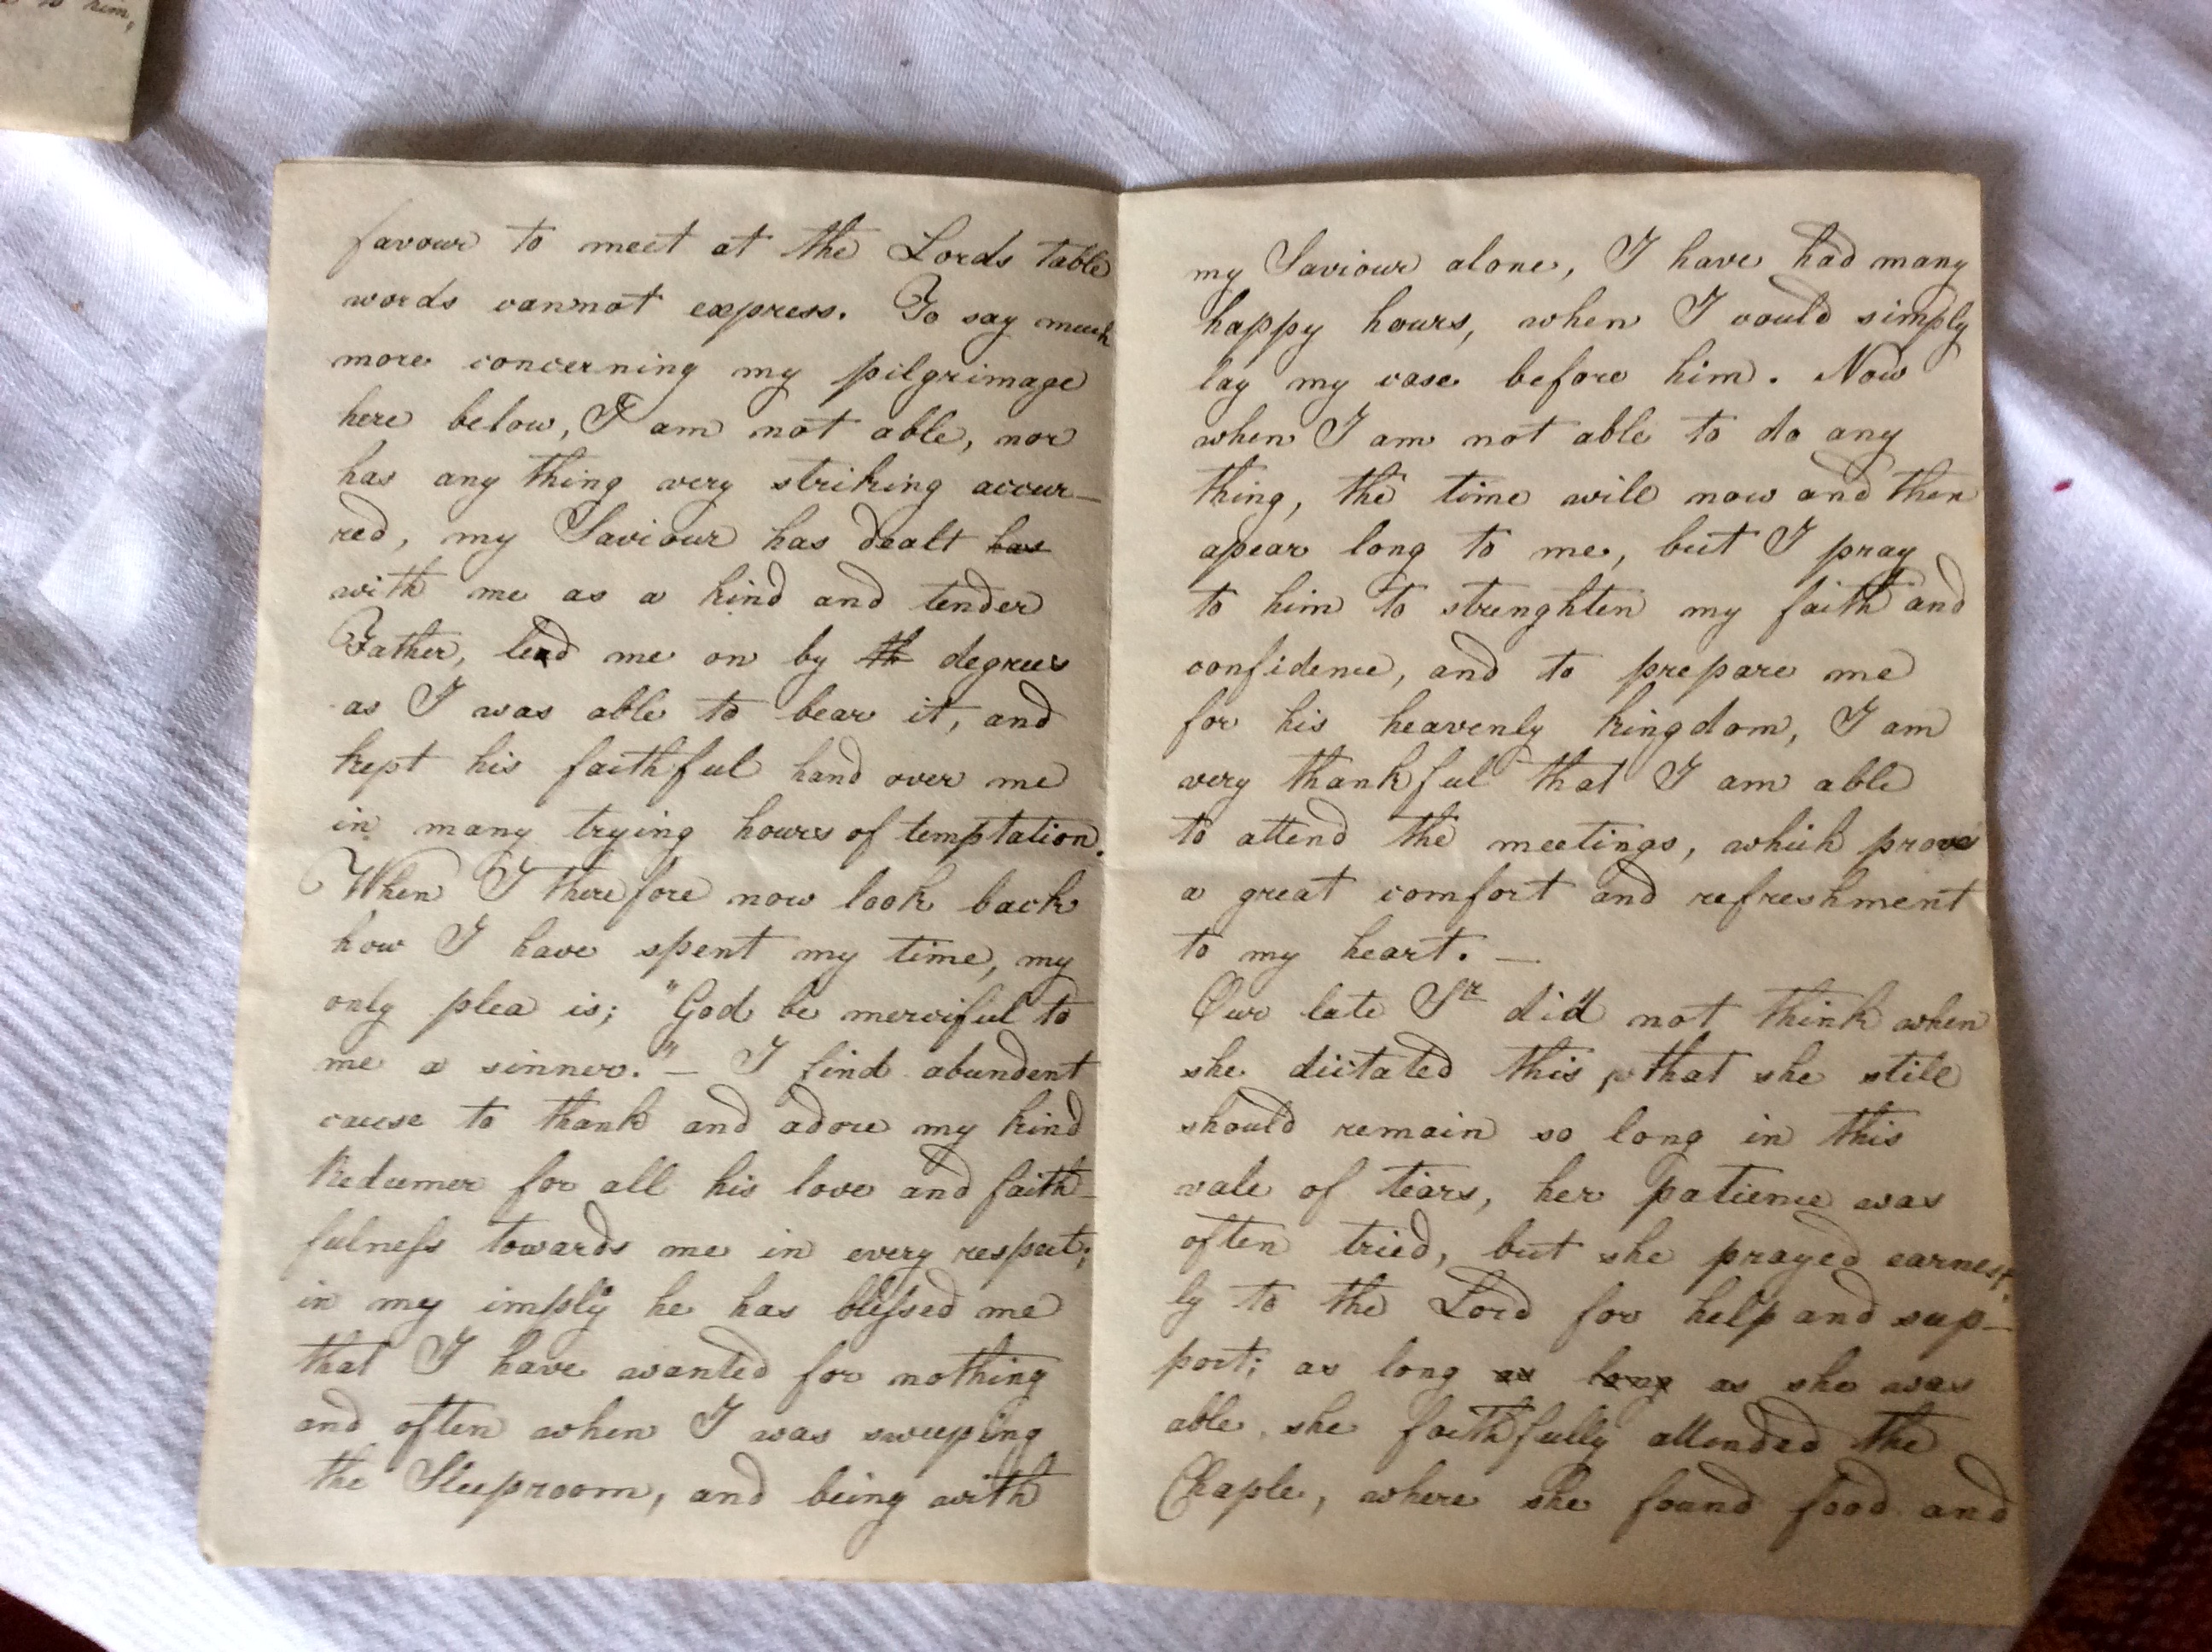 to him,
favour to meet at the Lords table
words cannot express. To say much
more concerning my pilgrimage
here below, I am not able, nor
has any thing very striking accur-
red, my Saviour has dealt has
with me as a kind and tender
Father, lead me on by th degrees
as I was able to bear it, and
kept his faithful hand over me
in many trying hours of temptation.
When I therefore now look back
how I have spent my time, my
only plea is; "God be merciful to
me a sinner." – I find abundent
cause to thank and adore my kind
Redeemer for all his love and faith-
fulness towards me in every respect;
in my imply he has blessed me
that I have wanted for nothing
and often when I was sweeping
the Sleeproom, and being with
my Saviour alone, I have had many
happy hours, when I could simply
lay my case before him. Now
when I am not able to do any
thing, the time will now and then
apear long to me, but I pray
to him to strenghten my faith and
confidence, and to prepare me
for his heavenly kingdom, I am
very thankful that I am able
to attend the meetings, which prove
a great comfort and refreshment
to my heart. –
Our late Sr did not think when
she dictated this, that she still
should remain so long in this
vale of tears, her patience was
often tried, but she prayed earnest-
ly to the Lord for help and sup-
port; as long as long as she was
able she faithfully attended the
Chaple, where she found food and